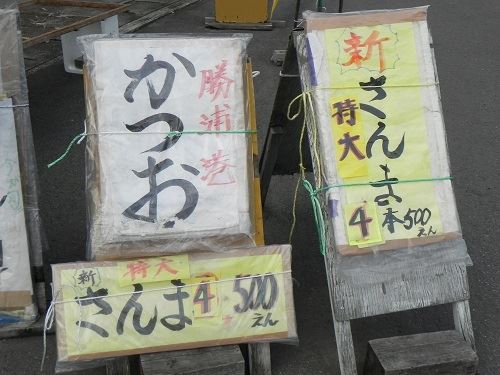 勝浦港
かつお
新
さんま
特大
4本500
えん
新
特大
さんま4本500
えん